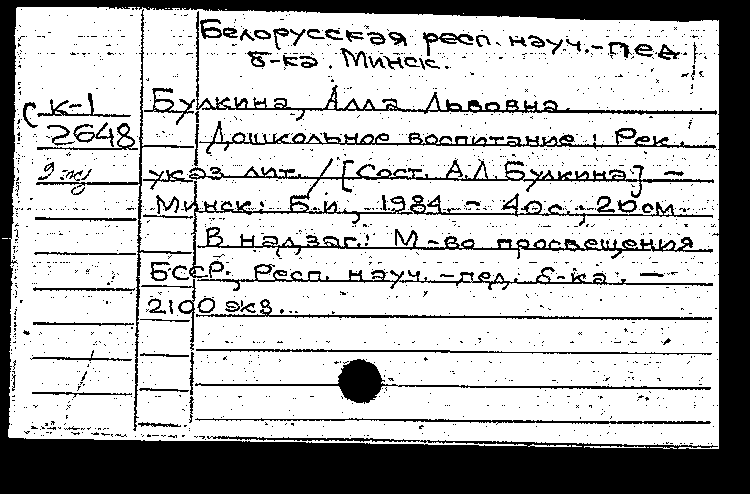 Белорусская респ. науч.-пед.
б-ка. Минск.
С к-1
2648
Булкина, Алла Львовна.
Дошкольное воспитание : Рек.
указ лит. / [Сост. А.Л.Булкина]. -
Минск: Б.и., 1984. - 40с.; 20см.
В надзаг.: М-во просвещения
БССР, Респ. науч.-пед. б-ка. -
2100 экз..